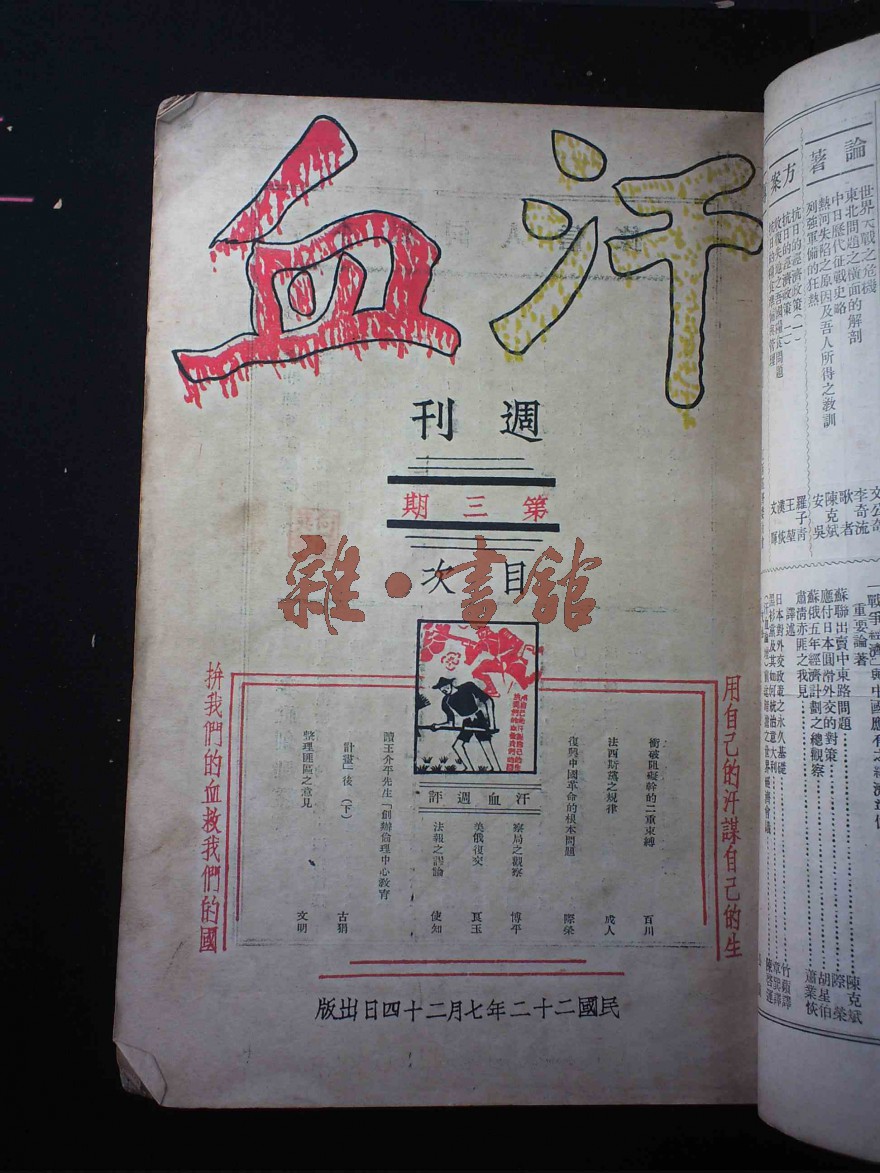 汗血
週刊
第三期
目次
雜·書館
用自己的汗謀自己的生
拚我們的血救我們的國
衝破阻礙幹的二重束縛 百川
法西斯蒂之規律 成人
復興中國革命的根本問題 際榮
汗血週評
察局之觀察 博平
美俄復交 真玉
法報之謬論 使知
讀王介平先生「創辦倫理中心教育
計畫」後(下) 古狷
整理匪區之意見 文明
民國二十二年七月二十四日出版
論著
世界大戰之危機
東北問題之橫面的解剖
中日歷代征戰史略
熱河失陷之原因及吾人所得之教訓
列強軍備的狂熱
文公奇
李奇流
歌者
陳克斌
安吳
方案
抗日的經濟政策(一)
抗日的經濟政策(二)
羅子青
重要論著
蘇聯出賣中東路問題 陳克斌
應付日本圓滑外交的對策 際榮
蘇俄五年經濟計劃之總觀察 胡星伯
肅清赤匪之我見 蕭業悏
譯述
日本對外交政策之永久基礎 竹蘋譯